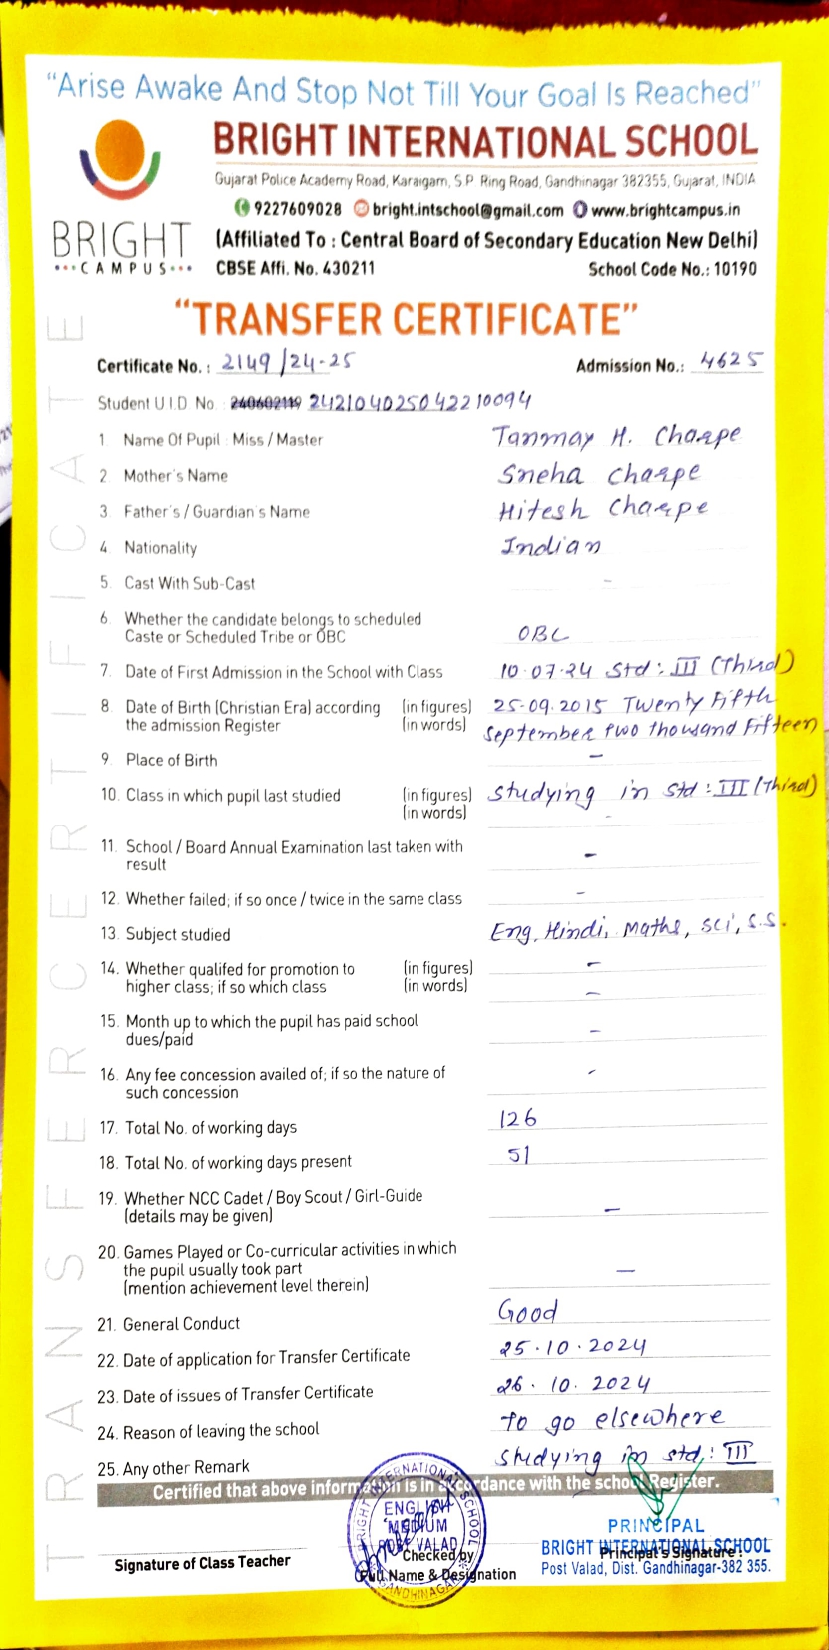 "Arise Awake And Stop Not Till Your Goal Is Reached"
BRIGHT INTERNATIONAL SCHOOL
Gujarat Police Academy Road, Karaigam, S.P. Ring Road, Gandhinagar 382355, Gujarat, INDIA
9227609028 bright.intschool@gmail.com www.brightcampus.in
BRIGHT
CAMPUS
(Affiliated To : Central Board of Secondary Education New Delhi)
CBSE Affi. No. 430211 School Code No.: 10190
"TRANSFER CERTIFICATE"
TRANSFER CERTIFICATE
Certificate No. : 2149/24-25 Admission No.: 4625
Student U.I.D. No. 240602119 242104025042210094
1. Name Of Pupil : Miss / Master Tanmay H. Charpe
2. Mother's Name Sneha Charpe
3. Father's / Guardian's Name Hitesh Charpe
4. Nationality Indian
5. Cast With Sub-Cast -
6. Whether the candidate belongs to scheduled
Caste or Scheduled Tribe or OBC OBC
7. Date of First Admission in the School with Class 10.07.24 Std: III (Third)
8. Date of Birth (Christian Era) according (in figures) 25.09.2015 Twenty Fifth
the admission Register (in words) September two thousand Fifteen
9. Place of Birth -
10. Class in which pupil last studied (in figures) Studying in Std: III (Third)
(in words) -
11. School / Board Annual Examination last taken with
result -
12. Whether failed; if so once / twice in the same class -
13. Subject studied Eng, Hindi, Maths, Sci, S.S.
14. Whether qualifed for promotion to (in figures) -
higher class; if so which class (in words) -
15. Month up to which the pupil has paid school
dues/paid -
16. Any fee concession availed of; if so the nature of -
such concession
17. Total No. of working days 126
18. Total No. of working days present 51
19. Whether NCC Cadet / Boy Scout / Girl-Guide
(details may be given) -
20. Games Played or Co-curricular activities in which
the pupil usually took part -
(mention achievement level therein)
21. General Conduct Good
22. Date of application for Transfer Certificate 25.10.2024
23. Date of issues of Transfer Certificate 26.10.2024
24. Reason of leaving the school To go elsewhere
25. Any other Remark Studying in std: III
Certified that above information is in accordance with the school Register.
BRIGHT INTERNATIONAL SCHOOL
ENGLISH
MEDIUM
POST VALAD
GANDHINAGAR
PRINCIPAL
BRIGHT INTERNATIONAL SCHOOL
Post Valad, Dist. Gandhinagar-382 355.
Signature of Class Teacher
Checked by
Full Name & Designation
Principal's Signature :